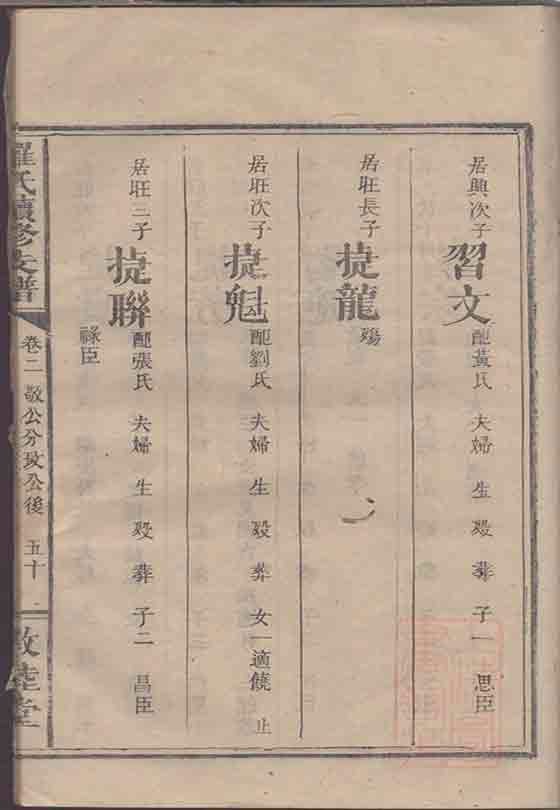 居興次子習文配黃氏夫婦生歿葬子一思臣
居旺長子捷龍殤
居旺次子捷魁配劉氏夫婦生歿葬女一適饒止
居旺三子捷聯配張氏夫婦生歿葬子二昌臣
祿臣
羅氏續修支譜
卷二 敬公分致公後 五十
敦睦堂